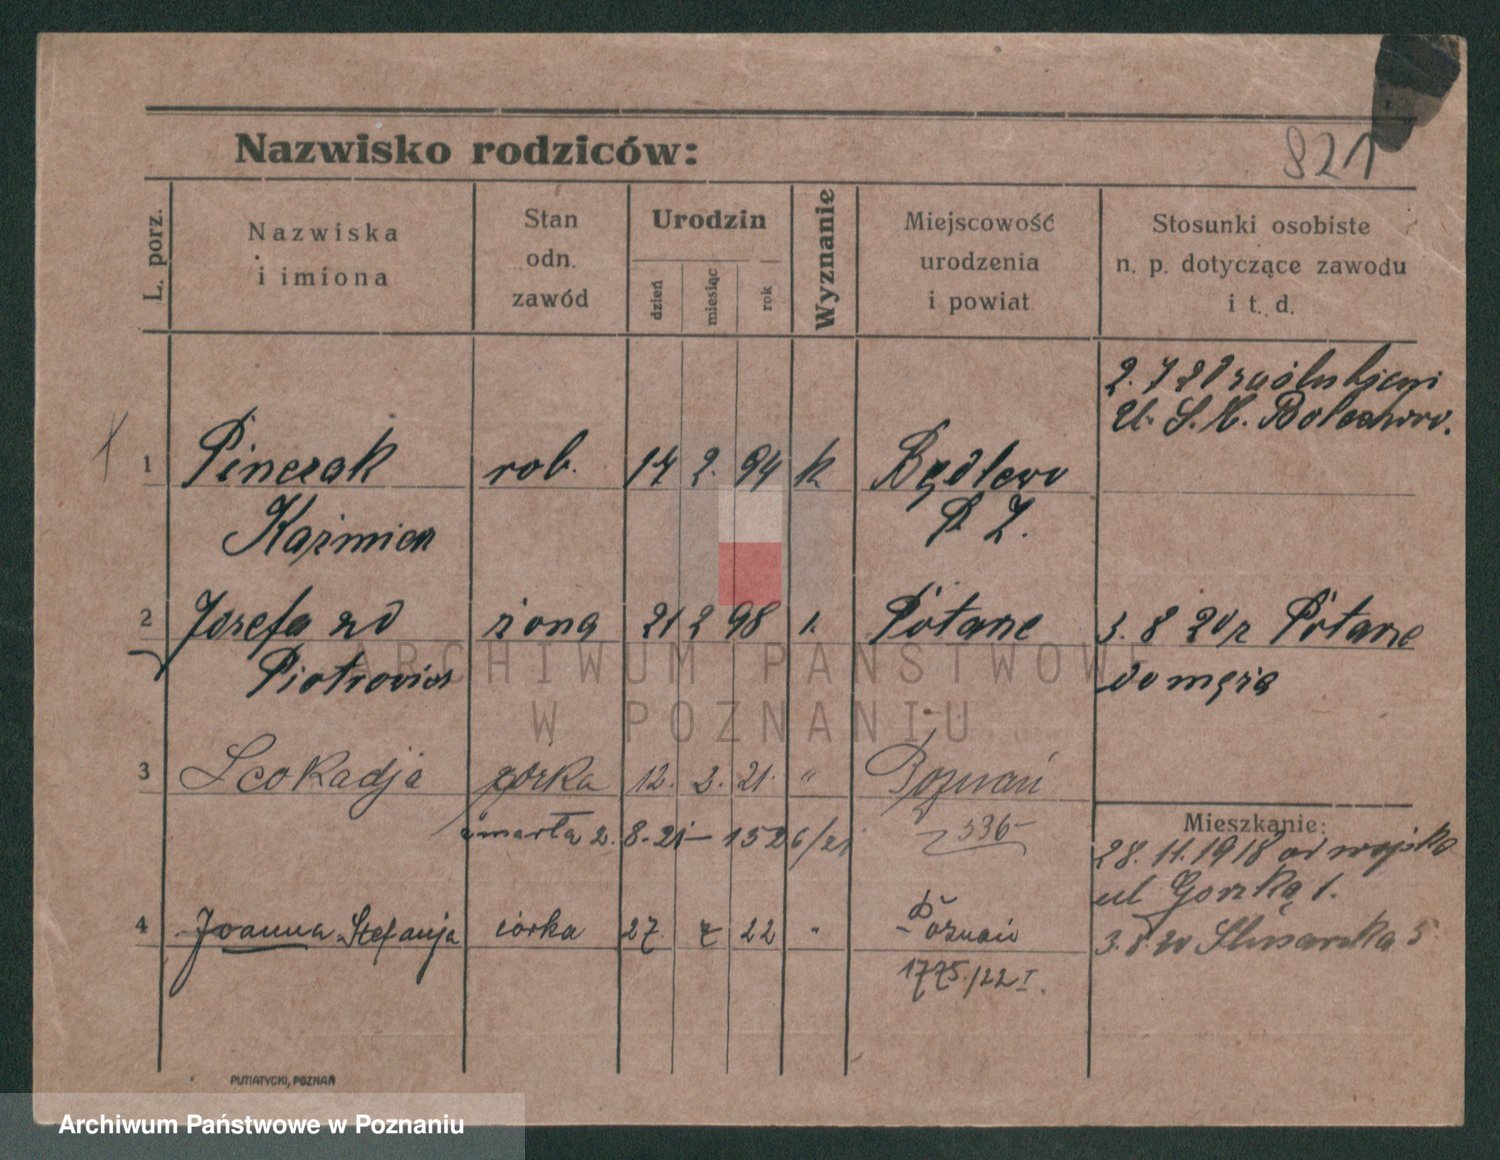 821
Nazwisko rodziców:
L. porz.
Nazwiska
i imiona
Stan
odn.
zawód
Urodzin
dzień
miesiąc
rok
Wyznanie
Miejscowość
urodzenia
i powiat
Stosunki osobiste
n. p. dotyczące zawodu
i t. d.
2. 7 20
U. S. C. Bolechowo.
1 Pinczak rob. 17 2. 94 k Będlewo
Kaźmierz P. Z.
2 Josefa zd żona 21 2 98 1. Pótarze 3. 8 20 z Pótarze
Piotrowicz do męża
ARCHIWUM PAŃSTWOWE
W POZNANIU
3 Leokadja córka 12. 2. 21. " Poznań
zmarła 2. 8. 21 — 1526/21 336
Mieszkanie:
28. 11. 1918 od wojska
ul Gorzka 1.
4 Joanna Stefanja córka 27 7 22 " Poznań 3. 8 20 Slusarska 5
1775/22 I.
PUTIATYCKI, POZNAŃ
Archiwum Państwowe w Poznaniu